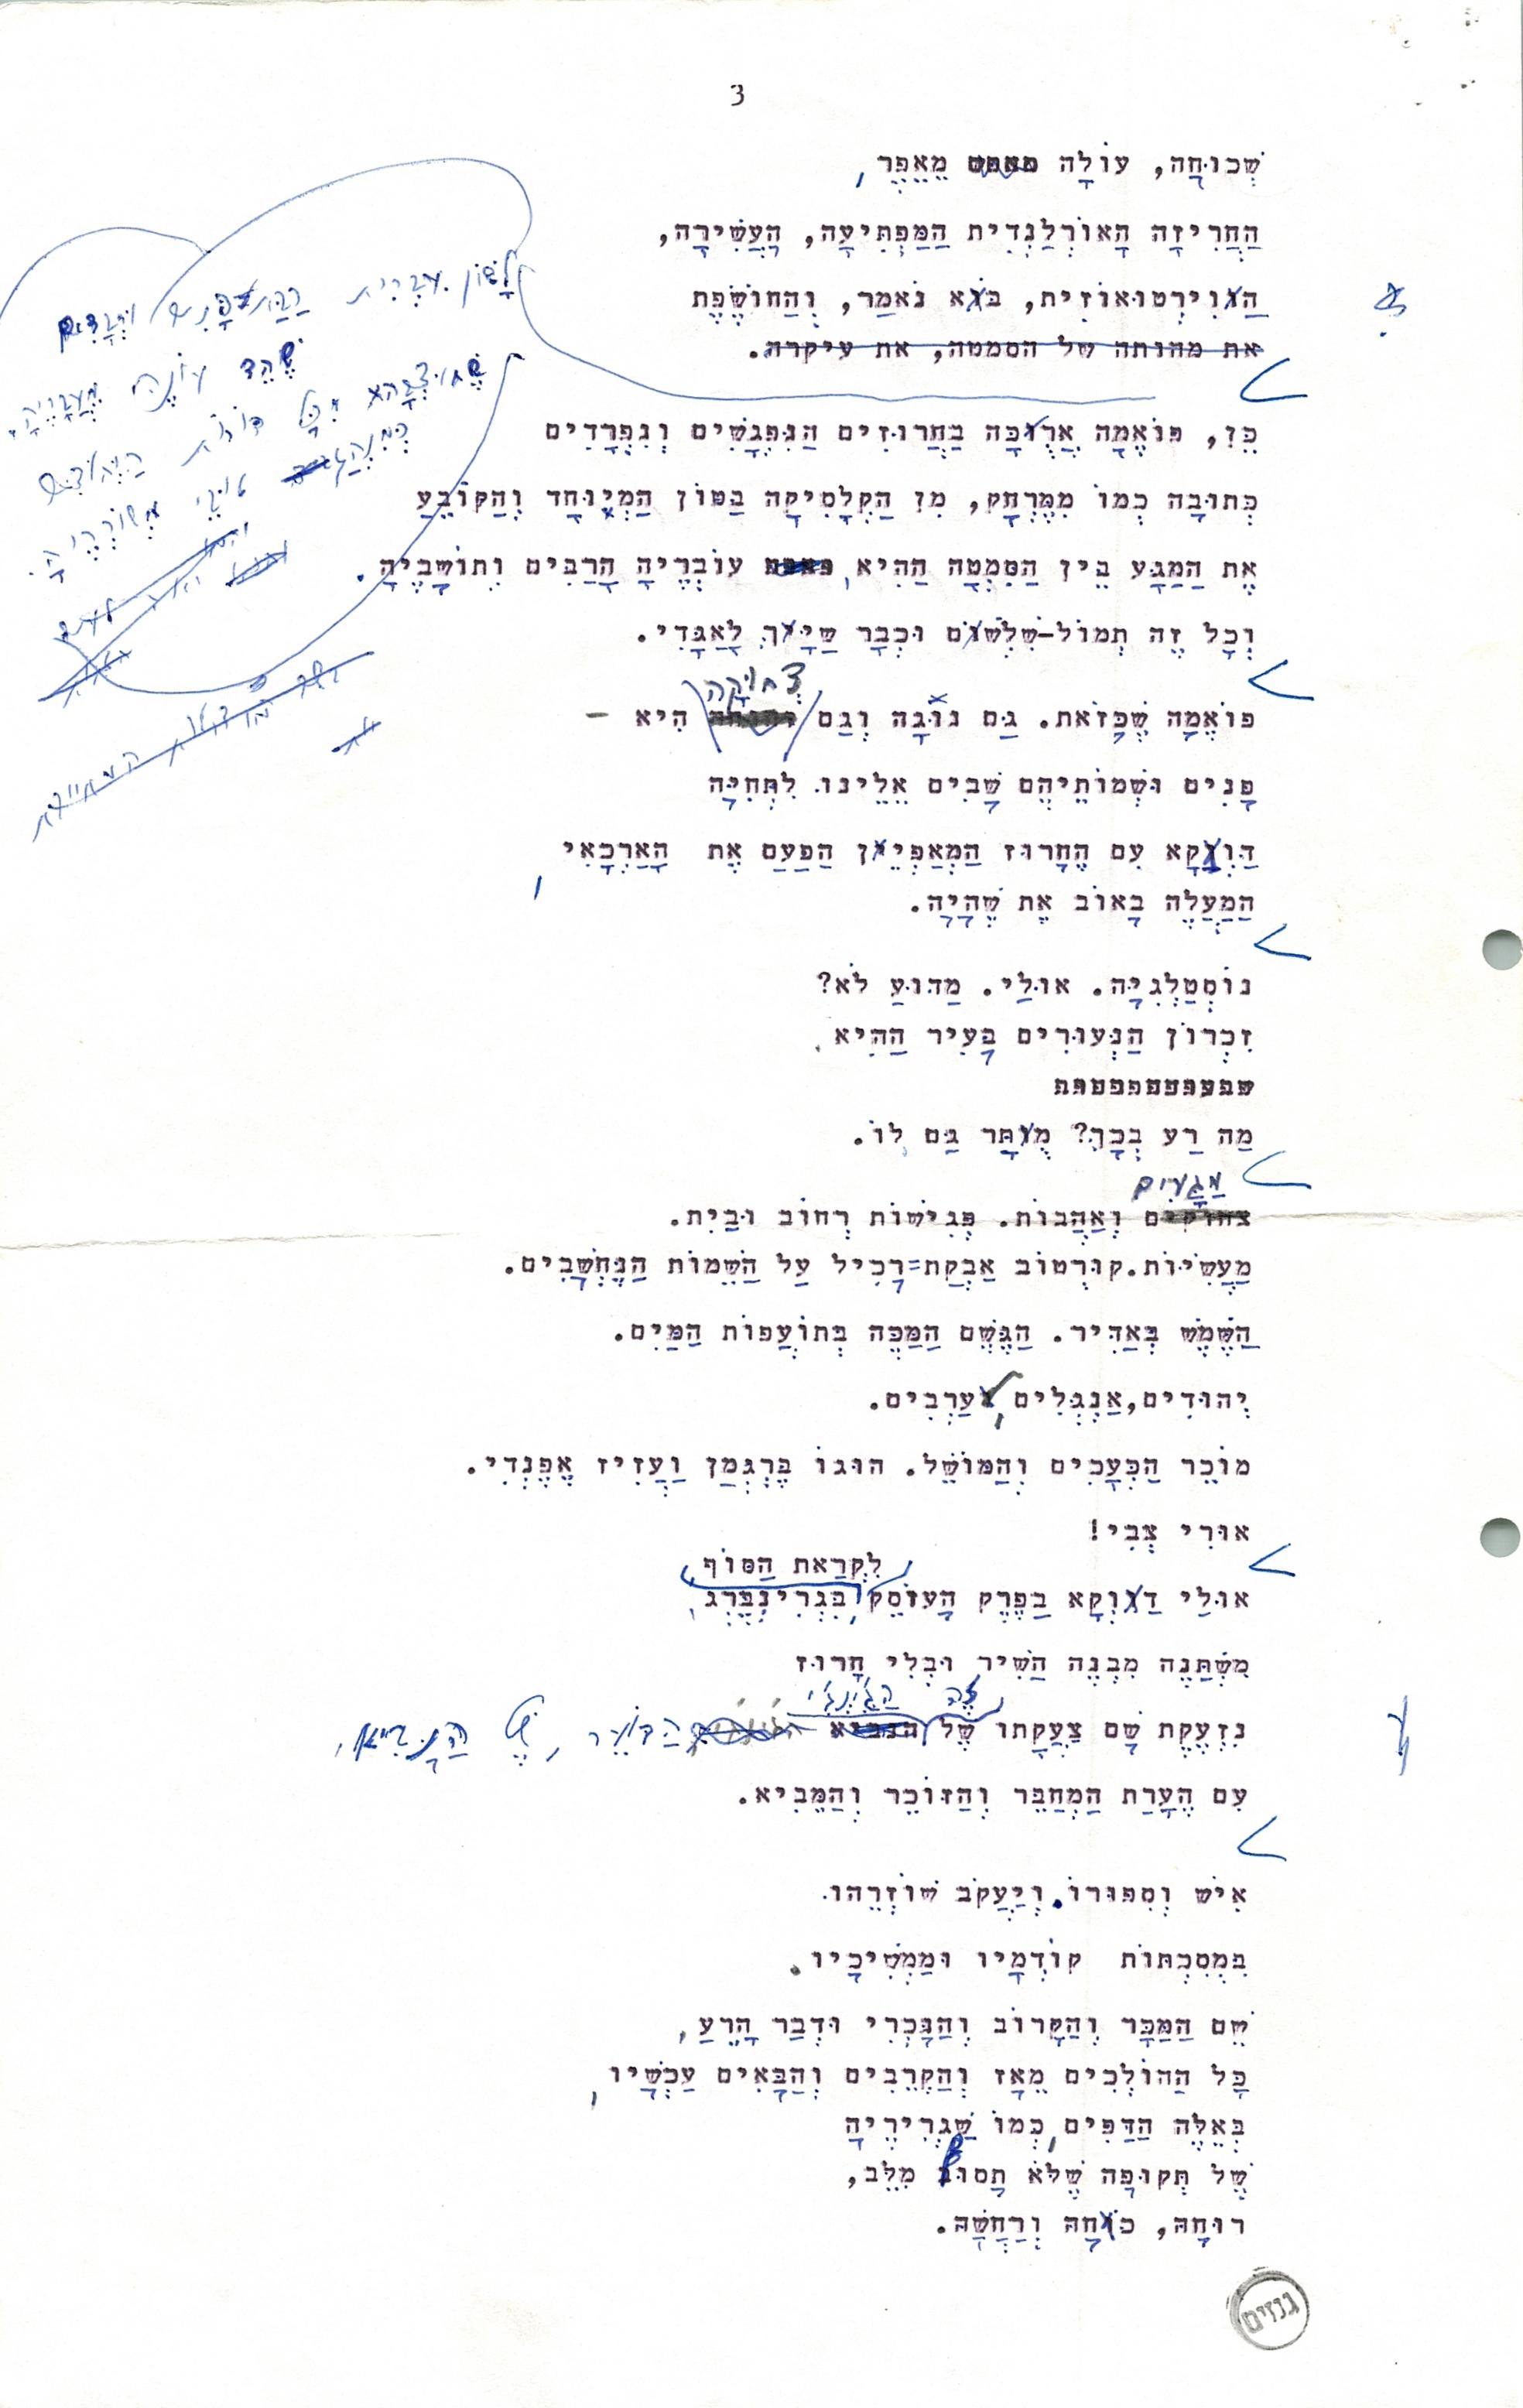 3
שְׁכוּחָה, עוֹלָה מֵאֵפֶר,
הַחֲרִיזָה הָאוֹרְלַנְדִית הַמַּפְתִּיעָה, הָעֲשִׁירָה,
הַוִירְטוּאוֹזִית, בֹּא נֹאמַר, וְהַחוֹשֶׂפֶת
את מהותה של הסמטה, את עיקרה.
לָשׁוֹן עִבְרִית
שֶׁהֵד עוֹנֶה מֵעֲבָרֶיהָ,
כֵּן, פּוֹאֶמָה אֲרֻכָּה בַּחֲרוּזִים הַנִּפְגָּשִׁים וְנִפְרָדִים
כְּתוּבָה כְּמוֹ מִמֶּרְחָק, מִן הַקְלָסִיקָה בַּטּוֹן הַמְיֻחָד וְהַקּוֹבֵעַ
אֶת הַמַּגָּע בֵּין הַסִּמְטָה הַהִיא, עוֹבְרֶיהָ הָרַבִּים וְתוֹשָׁבֶיהָ.
וְכָל זֶה תְּמוֹל-שִׁלְשֹׁם וּכְבָר שַׁיָּךְ לָאַגָּדִי.
צְחוֹקָה
פּוֹאֶמָה שֶׁכָּזֹאת. גַּם נוּגָה וְגַם הִיא –
פָּנִים וּשְׁמוֹתֵיהֶם שָׁבִים אֵלֵינוּ לִתְחִיָּה
דַּוְקָא עִם הֶחָרוּז הַמְאַפְיֵן הַפַּעַם אֶת הָאַרְכָאִי,
הַמַּעֲלֶה בָּאוֹב אֶת שֶׁהָיָה.
נוֹסְטַלְגִיָּה. אוּלַי. מַדּוּעַ לֹא?
זִכְרוֹן הַנְּעוּרִים בָּעִיר הַהִיא.
מַה רַע בְּכָךְ? מֻתָּר גַּם לוֹ.
מַגָּעִים
צחוקים וְאַהֲבוֹת. פְּגִישׁוֹת רְחוֹב וּבַיִת.
מַעֲשִׂיּוֹת. קוּרְטוֹב אַבְקַת=רָכִיל עַל הַשֵּׁמוֹת הַנֶּחְשָׁבִים.
הַשֶּׁמֶשׁ בְּאַדִּיר. הַגֶּשֶׁם הַמַּכֶּה בְּתוֹעֲפוֹת הַמַּיִם.
יְהוּדִים, אַנְגְּלִים, עַרְבִים.
מוֹכֵר הַכְּעָכִים וְהַמּוֹשֵׁל. הוּגוֹ בֶּרְגְּמַן וַעֲזִיז אֶפֶנְדִי.
אוּרִי צְבִי!
לִקְרַאת הַסּוֹף
אוּלַי דַּוְקָא בַּפֶּרֶק הָעוֹסֵק, בִּגְרִינְבֶּרְג,
מִשְׁתַּנֶּה מִבְנֵה הַשִּׁיר וּבְלִי חָרוּז
זֶה הַגִּ'ינְגִ'י
נִזְעֶקֶת שָׁם צַעֲקָתוֹ שֶׁל הנביא הַבּוֹעֵר, שֶׁל הַנָּבִיא,
עִם הֶעָרַת הַמְחַבֵּר וְהַזּוֹכֵר וְהַמֵּבִיא.
אִישׁ וְסִפּוּרוֹ. וְיַעֲקֹב שׁוֹזְרֵהוּ
בְּמַסֶּכְתּוֹת קוֹדְמָיו וּמַמְשִׁיכָיו.
שֵׁם הַמַּכָּר וְהַקָּרוֹב וְהַנָּכְרִי וּדְבַר הָרֵעַ,
כָּל הַהוֹלְכִים מֵאָז וְהַקְּרֵבִים וְהַבָּאִים עַכְשָׁיו,
בְּאֵלֶּה הַדַּפִּים, כְּמוֹ שַׁגְרִירֶיהָ
שֶׁל תְּקוּפָה שֶׁלֹּא תָסוּף מִלֵּב,
רוּחָהּ, כֹּחָהּ וְרַחֲשָׁהּ.
גנזים